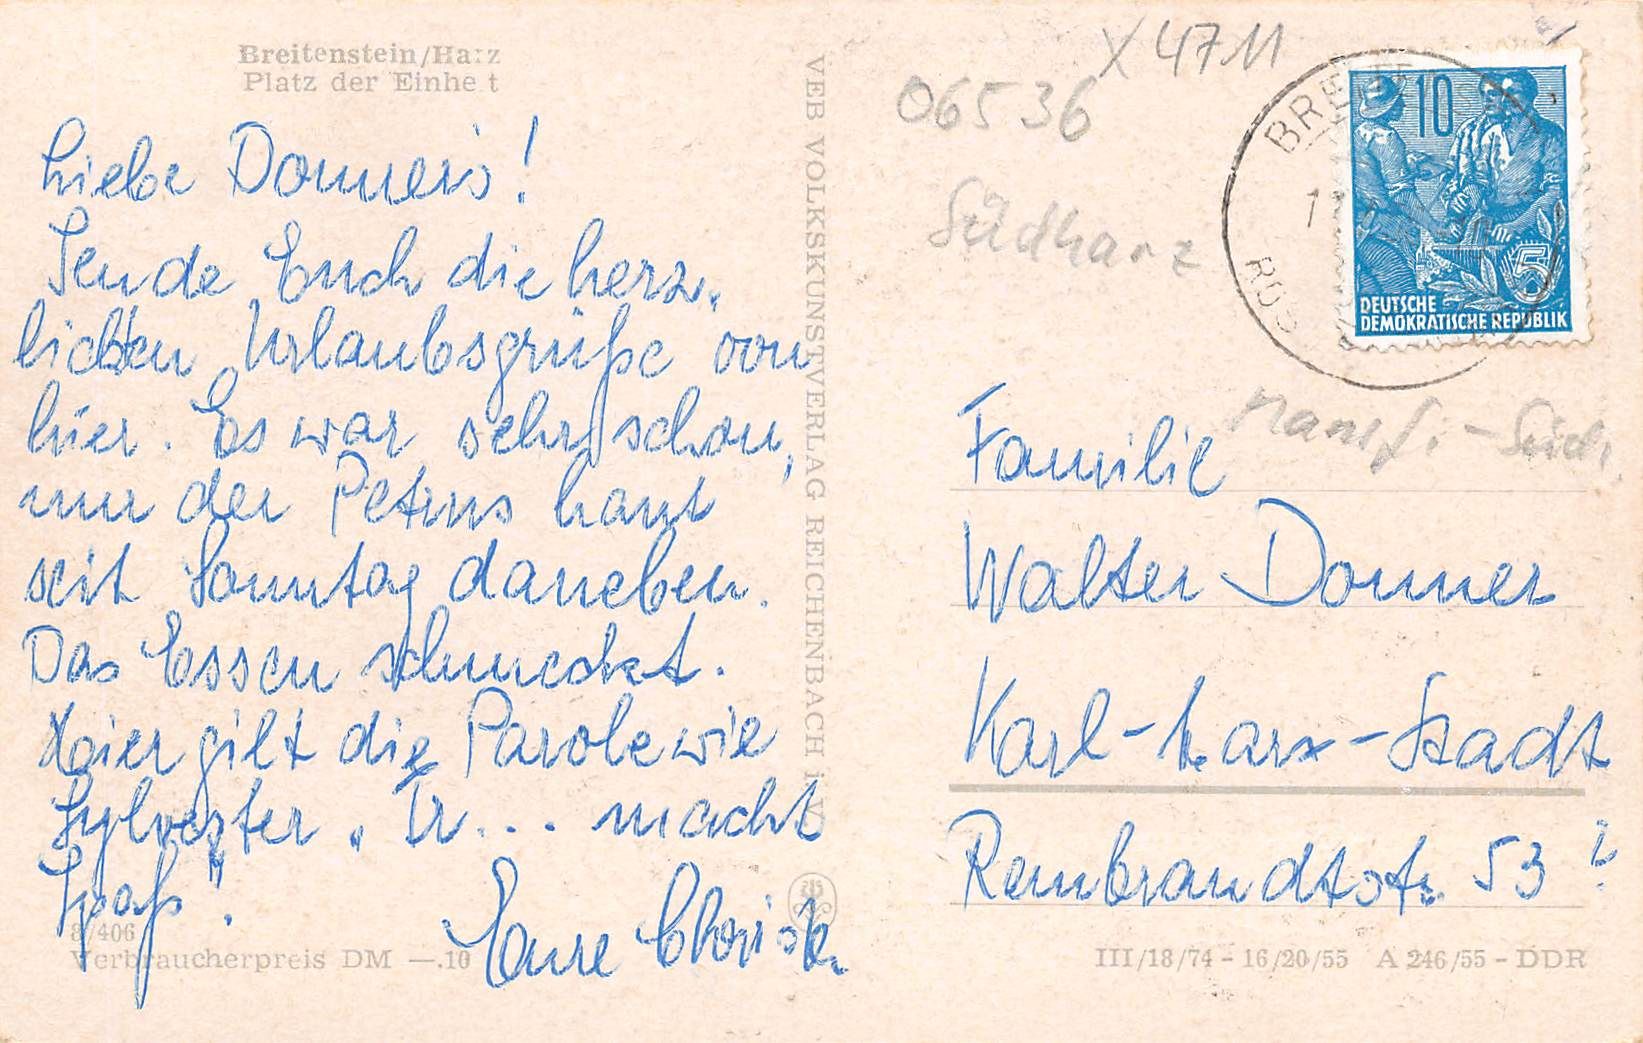 Breitenstein/Harz
Platz der Einheit
Liebe Donners!
Sende Euch die herz-
lichsten Urlaubsgrüße von
hier. Es war sehr schön,
nur der Petrus haut
seit Sonntag daneben.
Das Essen schmeckt.
Hier gilt die Parole wie
Sylvester „Tr... macht
Spaß".
Eure Christa.
8/406
Verbraucherpreis DM —.10
VEB VOLKSKUNSTVERLAG REICHENBACH i. V.
X 4711
06536
Südharz
Mansf.-Südh.
BREITE
ROS
10
5
DEUTSCHE
DEMOKRATISCHE REPUBLIK
Familie
Walter Donner
Karl-Marx-Stadt
Rembrandtstr. 53 ?
III/18/74 - 16/20/55 A 246/55 - DDR